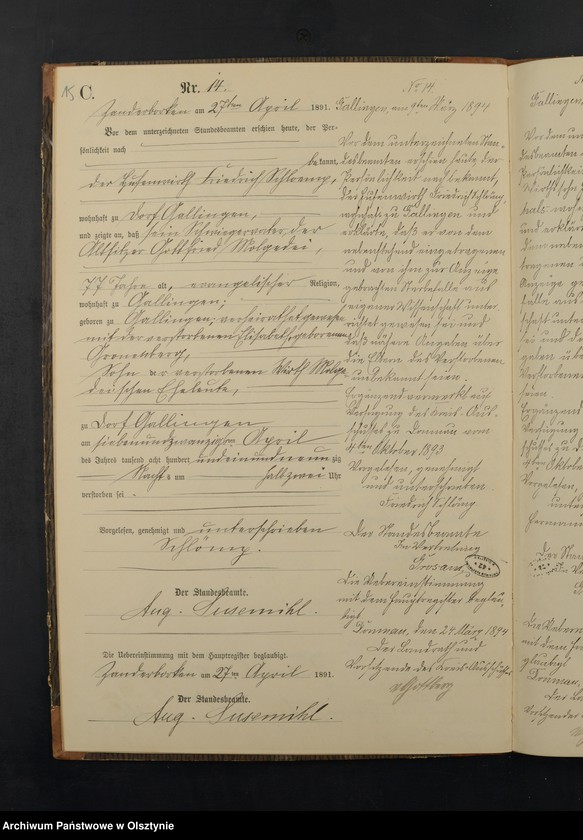 15 C.
Nr. 14.
Zanderborken am 27ten April 1891.
Vor dem unterzeichneten Standesbeamten erschien heute, der Per-
sönlichkeit nach
bekannt,
der Hufenwirth Friedrich Schloemp,
wohnhaft zu Dorf Gallingen,
und zeigte an, daß sein Schwiegervater der
Altsitzer Gottfried Molgedei,
77 Jahre alt, evangelischer Religion,
wohnhaft zu Gallingen;
geboren zu Gallingen, verheirathet gewesen
mit der verstorbenen Elisabeth, geborenen
Sohn der verstorbenen Wirth Molge-
dei'schen Eheleute,
zu Dorf Gallingen
am siebenundzwanzigten April
des Jahres tausend acht hundert undeinundneunzig
Nachts um halb zwei Uhr
verstorben sei.
Vorgelesen, genehmigt und unterschrieben
Schlömp.
Der Standesbeamte.
Aug. Susemihl.
Die Uebereinstimmung mit dem Hauptregister beglaubigt.
Zanderborken am 27ten April 1891.
Der Standesbeamte.
Aug. Susemihl.
No. 14
Gallingen, am 9ten März 1894
Vor dem unterzeichneten Stan-
desbeamten erschien heute der
Persönlichkeit nach bekannt,
der Hufenwirth Friedrich Schlömp,
wohnhaft zu Gallingen und
erklärte, daß er von dem
nebenstehend eingetragenen
und von ihm zur Anzeige
gebrachten Sterbefalle aus
eigener Wissenschaft unter-
richtet gewesen sei und
daß nähere Angaben über
die Eltern des Verstorbenen
unbekannt seien.
Ergänzend vermerkt auf
Verfügung des Kreis-Aus-
schusses zu Domnau vom
4ten Oktober 1893
Vorgelesen, genehmigt
und unterschrieben
Friedrich Schlömp
Der Standesbeamte
In Vertretung
Die Uebereinstimmung
mit dem Hauptregister beglau-
bigt
Domnau, den 24 März 1894
Der Landrath und
Vorsitzende des Kreis-Ausschusses
Archiwum Państwowe w Olsztynie